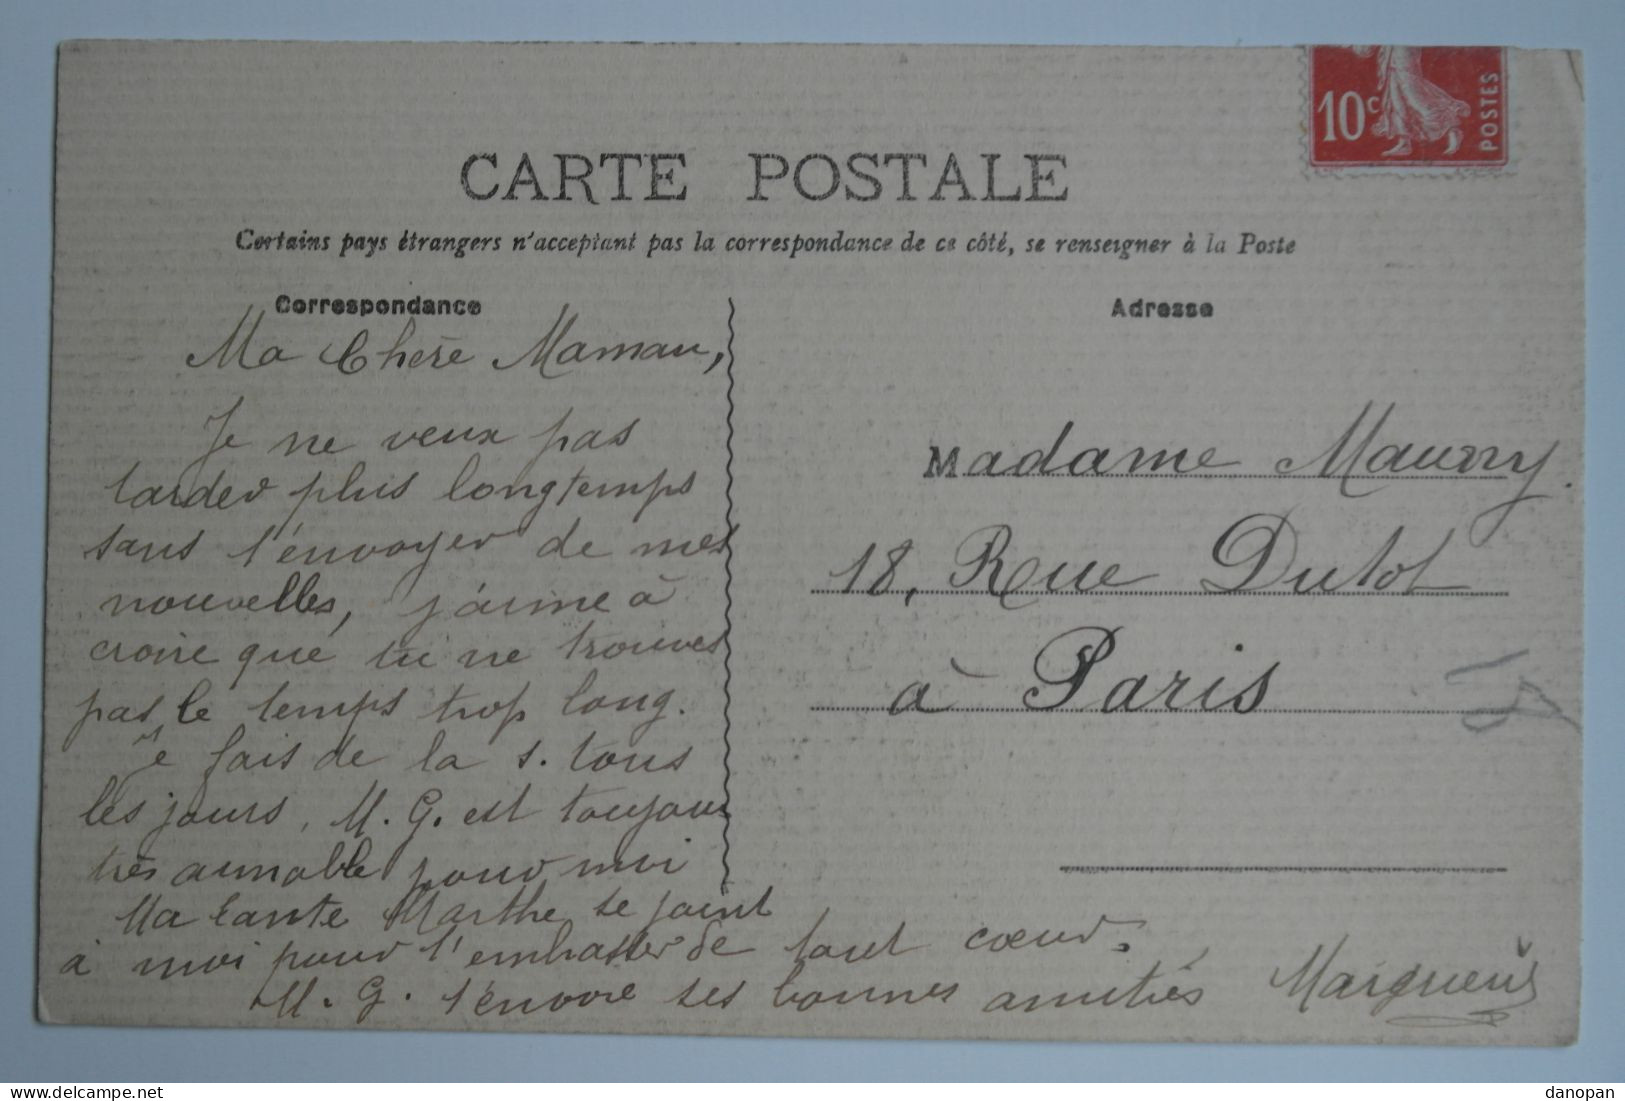 10c
POSTES
CARTE POSTALE
Certains pays étrangers n'acceptant pas la correspondance de ce côté, se renseigner à la Poste
Correspondance
Ma Chère Maman,
Je ne veux pas
tarder plus longtemps
sans t'envoyer de mes
nouvelles, j'aime à
croire que tu ne trouves
pas le temps trop long.
Je fais de la s. tous
les jours, M. G. est toujours
très aimable pour moi
Ma tante Marthe se joint
à moi pour t'embrasser de tout cœur.
M. G. t'envoie ses bonnes amitiés
Adresse
Madame Maurry.
18, Rue Dutot
à Paris
delcampe.net
danopan